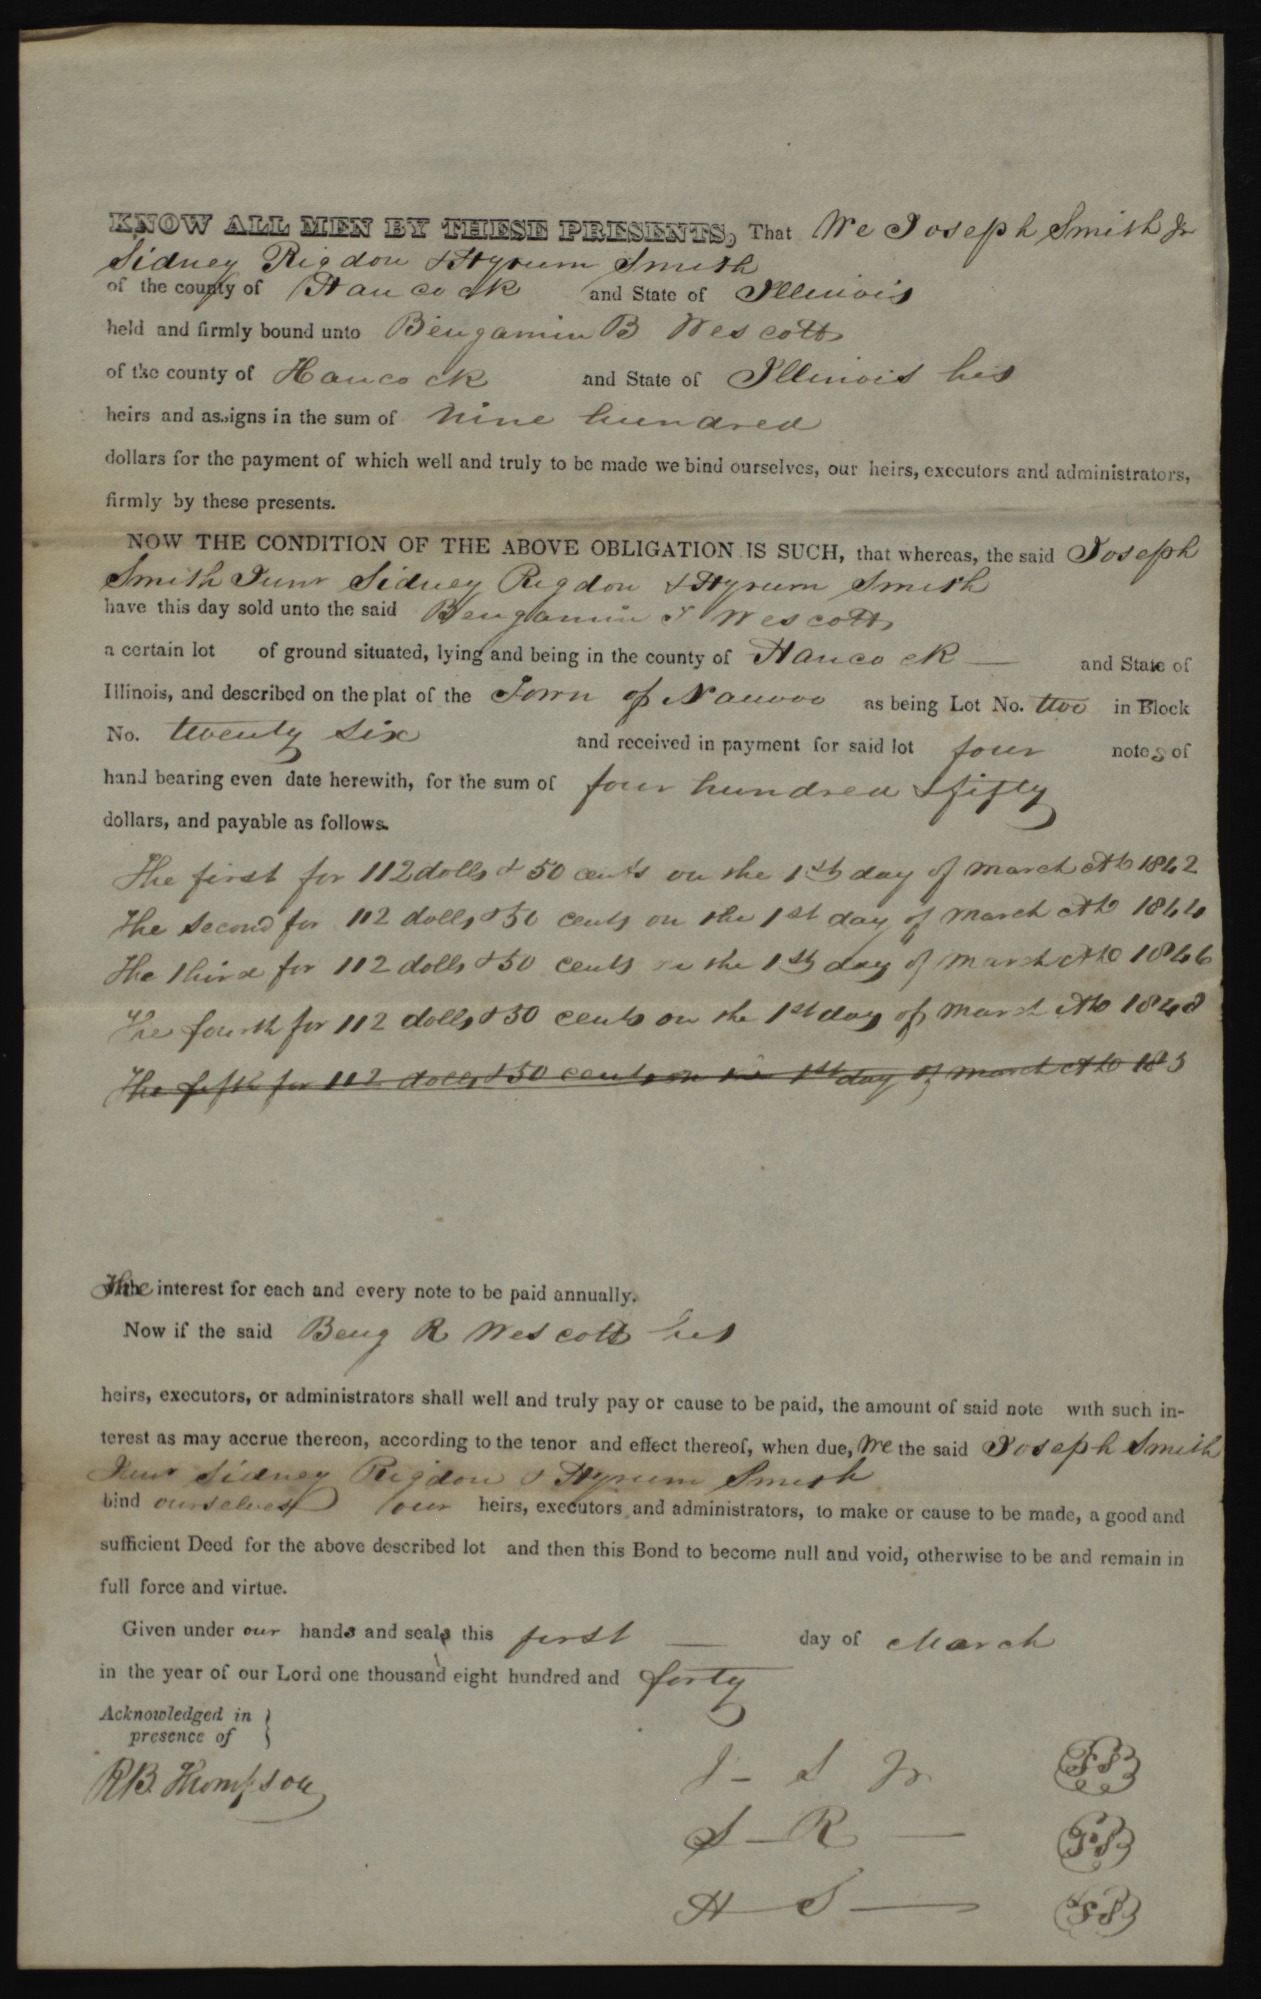 KNOW ALL MEN BY THESE PRESENTS, That We Joseph Smith Jr
Sidney Rigdon & Hyrum Smith
of the county of Hancock and State of Illinois
held and firmly bound unto Bengamin B Wescott
of the county of Hancock and State of Illinois his
heirs and assigns in the sum of Nine hundred
dollars for the payment of which well and truly to be made we bind ourselves, our heirs, executors and administrators,
firmly by these presents.
NOW THE CONDITION OF THE ABOVE OBLIGATION IS SUCH, that whereas, the said Joseph
Smith Junr Sidney Rigdon & Hyrum Smith
have this day sold unto the said Bengamin Wescott
a certain lot of ground situated, lying and being in the county of Hancock — and State of
Illinois, and described on the plat of the Town of Nauvoo as being Lot No. two in Block
No. twenty six and received in payment for said lot four notes of
hand bearing even date herewith, for the sum of four hundred & fifty
dollars, and payable as follows.
The first for 112 dolls & 50 cents on the 1st day of March AD 1842
The second for 112 dolls & 50 cents on the 1st day of March AD 1844
The third for 112 dolls & 50 cents on the 1st day of March AD 1846
The fourth for 112 dolls & 50 cents on the 1st day of March AD 1848
The fifth for 112 dolls & 50 cents on the 1st day of March AD 185
The interest for each and every note to be paid annually.
Now if the said Beng R Wescott his
heirs, executors, or administrators shall well and truly pay or cause to be paid, the amount of said note with such in-
terest as may accrue thereon, according to the tenor and effect thereof, when due, We the said Joseph Smith
Junr Sidney Rigdon & Hyrum Smith
bind ourselves our heirs, executors and administrators, to make or cause to be made, a good and
sufficient Deed for the above described lot and then this Bond to become null and void, otherwise to be and remain in
full force and virtue.
Given under our hands and seals this first — day of March
in the year of our Lord one thousand eight hundred and forty
Acknowledged in
presence of }
RB. Thompson
J – S Jr
S – R —
H – S —